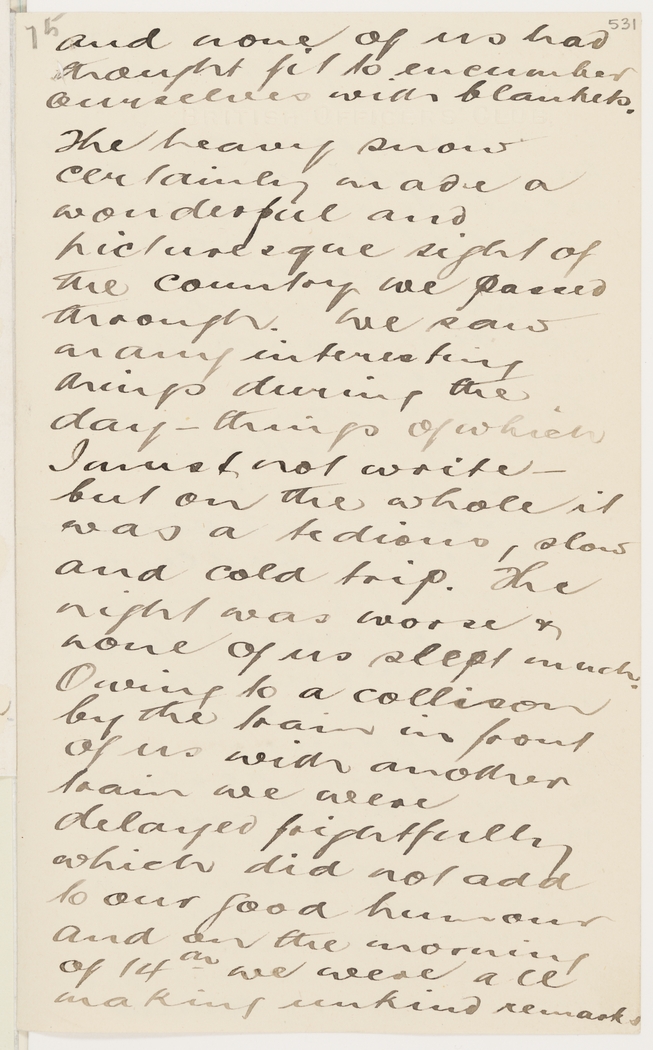 75
531
and none of us had
thought fit to encumber
ourselves with blankets.
The heavy snow
certainly made a
wonderful and
picturesque sight of
the country we passed
through. We saw
many interesting
things during the
day - things of which
I must not write -
but on the whole it
was a tedious, slow
and cold trip. The
night was worse &
none of us slept much.
Owing to a collison
by the train in front
of us with another
train we were
delayed frightfully
which did not add
to our good humour
and on the morning
of 14th we were all
making unkind remarks